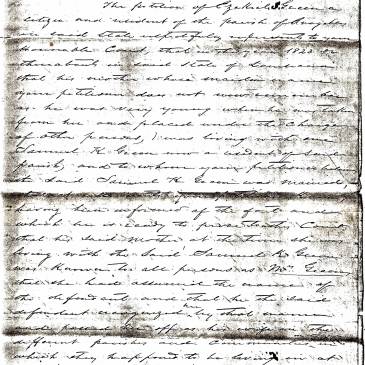 The petition of Ezekiel S. Green a
citizen and resident of the parish of
in said State respectfully represents to your
Honorable Court, that in the year 1823 or
thereabouts in said State of
that his mother whose maiden name
your petitioner does not now
as he was very young when he was taken
from her and placed under the charge
of other persons, was living with one
Samuel K. Green now a resident of said
parish, and to whom your petitioner
the said Samuel K. Green was married,
having been informed of the fact and
which he is ready to prove to this Court
that his said Mother at the time she was
living with the said Samuel K. Green
was known to all persons as Mrs. Green
that she had assumed the name of
the defendant and that he the said
defendant recognized her by that name
and passed her off as his wife in the
different parishes and
which they happened to be living in at